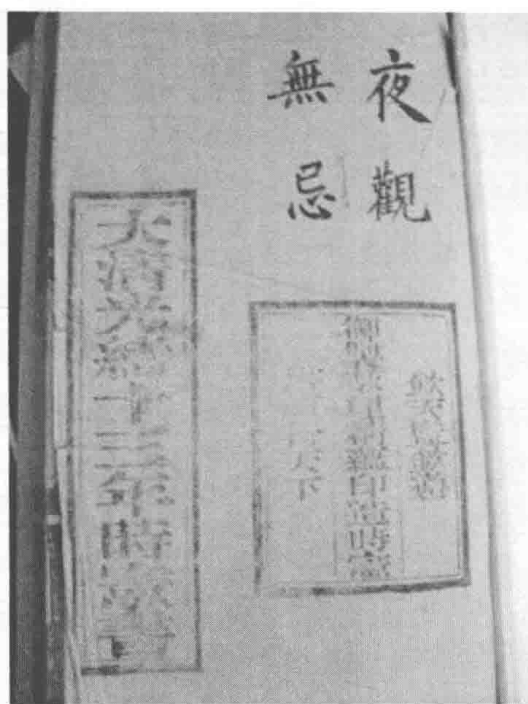 夜觀
無忌
欽天監欽遵
御製數理精蘊印造時憲
天下
大清光緒十三年時憲書